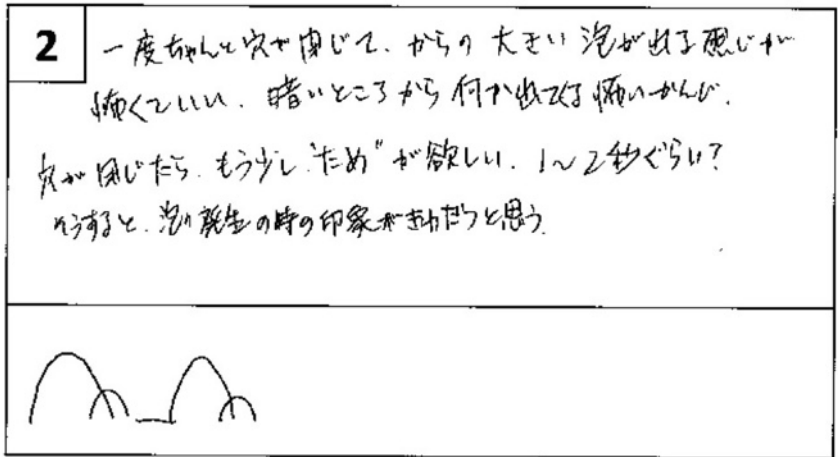 2
一度ちゃんと穴が閉じて、からの 大きい 泡が出る感じが
怖くていい. 暗いところから 何か出てくる怖いかんじ.
穴が閉じたら. もう少し"ため"が欲しい. 1〜2秒ぐらい?
そうすると. 泡発生の時の印象がきわだつと思う.